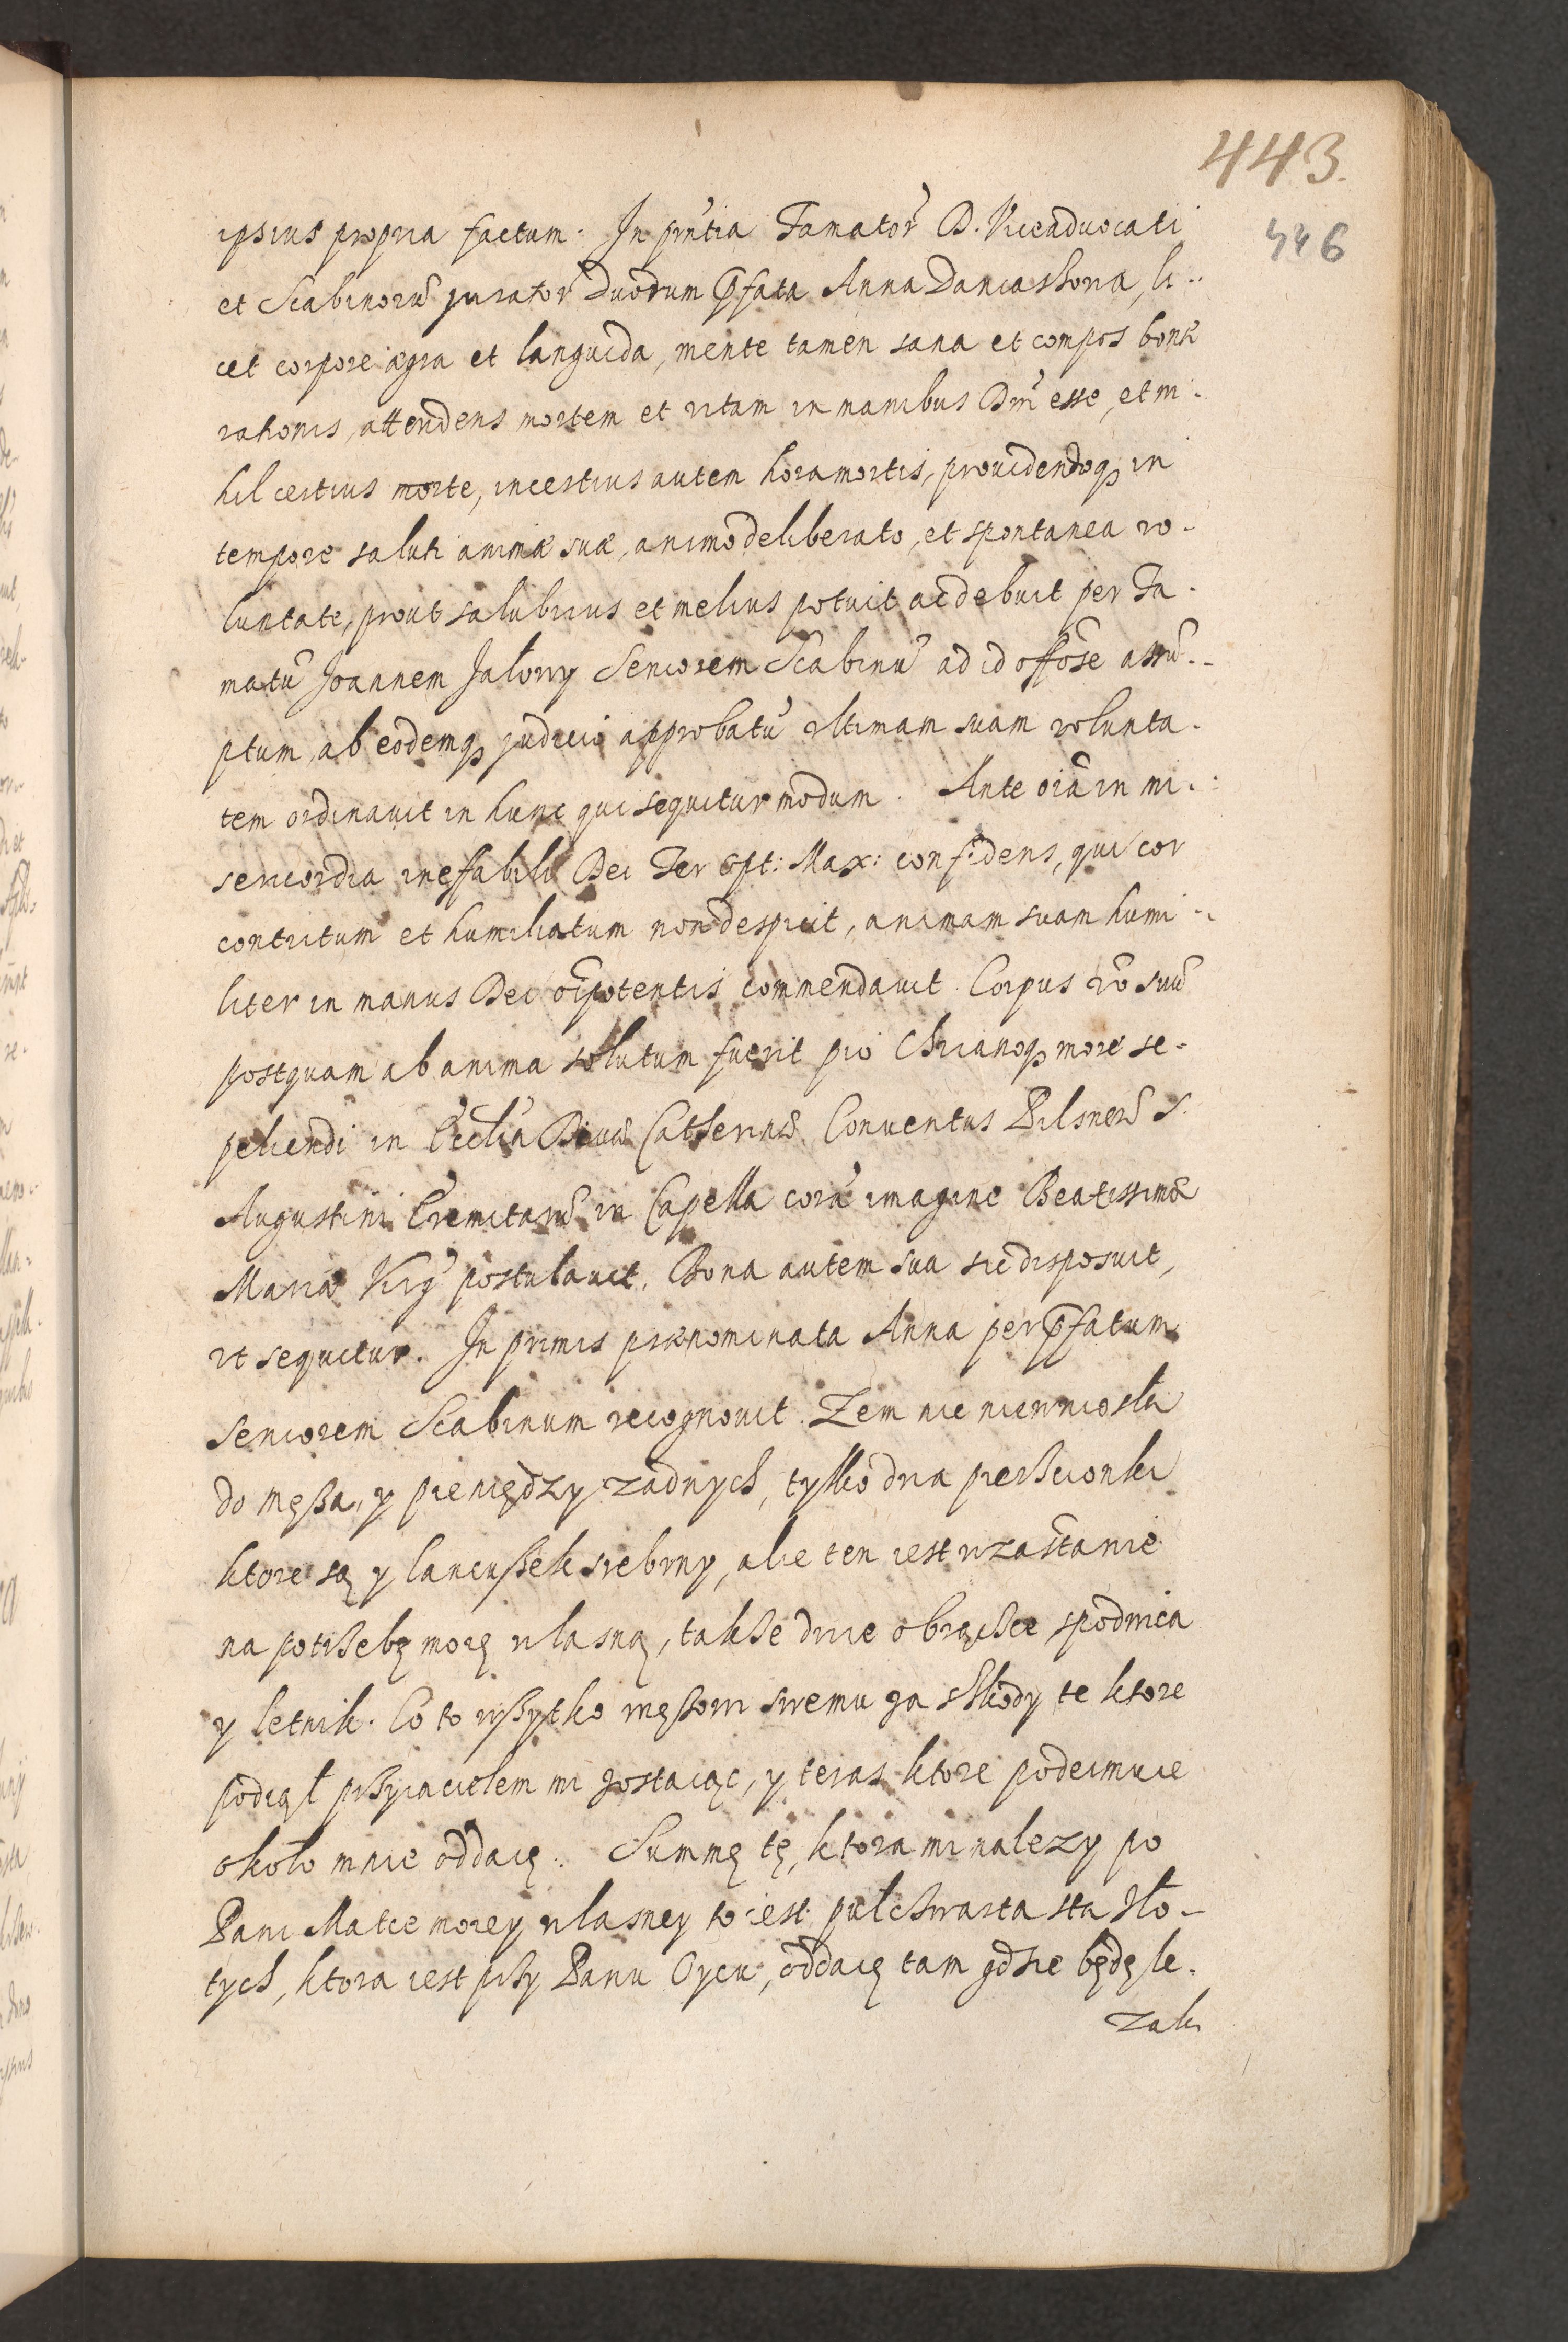 443.
446
ipsius propria factum. In pn̄tia Famator̄ D. Viceadvocati
et Scabinorū jurator̄ Duodum p̄fata Anna Daniaskowa, li-
cet corpore ægra et languida, mente tamen sana et compos bonæ
rationis, attendens mortem et vitam in manibus Dn̄i esse, et ni-
hil certius morte, incertius autem hora mortis, providendoq; in
tempore saluti animæ suæ, animo deliberato, et spontanea vo-
luntate, prout salubrius et melius potuit ac debuit per Fa-
matū Joannem Jałowy Seniorem Scabinū ad id offōse assū-
ptum, ab eodemq; judicio approbatū ultimam suam volunta-
tem ordinavit in hunc qui sequitur modum. Ante oīa in mi-
sericordia inefabili Dei Ter Opt: Max: confidens, qui cor
contritum et humiliatum non despicit, animam suam humi-
liter in manus Dei oīpotentis commendavit. Corpus vō suū
postquam ab anima solutum fuerit pio Chrianoq; more se-
peliendi in Ecclīa Divæ Catherinæ Conventus Pilsneñ S.
Augustini Eremitarū in Capella corā imagine Beatissimæ
Mariæ Virg̃ postulavit. Bona autem sua sic disposuit,
ut sequitur. In primis prænominata Anna per p̄fatum
Seniorem Scabinum recognovit. Zem nic niewniosła
do męsza, y pieniędzy zadnych, tylko dwa pierscionki
ktore są y lancuszek srebrny, ale ten iest w zastawie
na potrzebę moię własną, taksze dwie obrączce spodnica
y letnik. Co to wszytko męszowi swemu za szkody te ktore
podiął przyiacielem mi zostaiąc, y teras ktore podeimuie
około mnie oddaię. Summę tę, ktora mi nalezy po
Pani Matce moiey własney to iest pułczwarta sta zło-
tych, ktora iest przy Panu Oycu, oddaię tam gdzie będę le-
zała